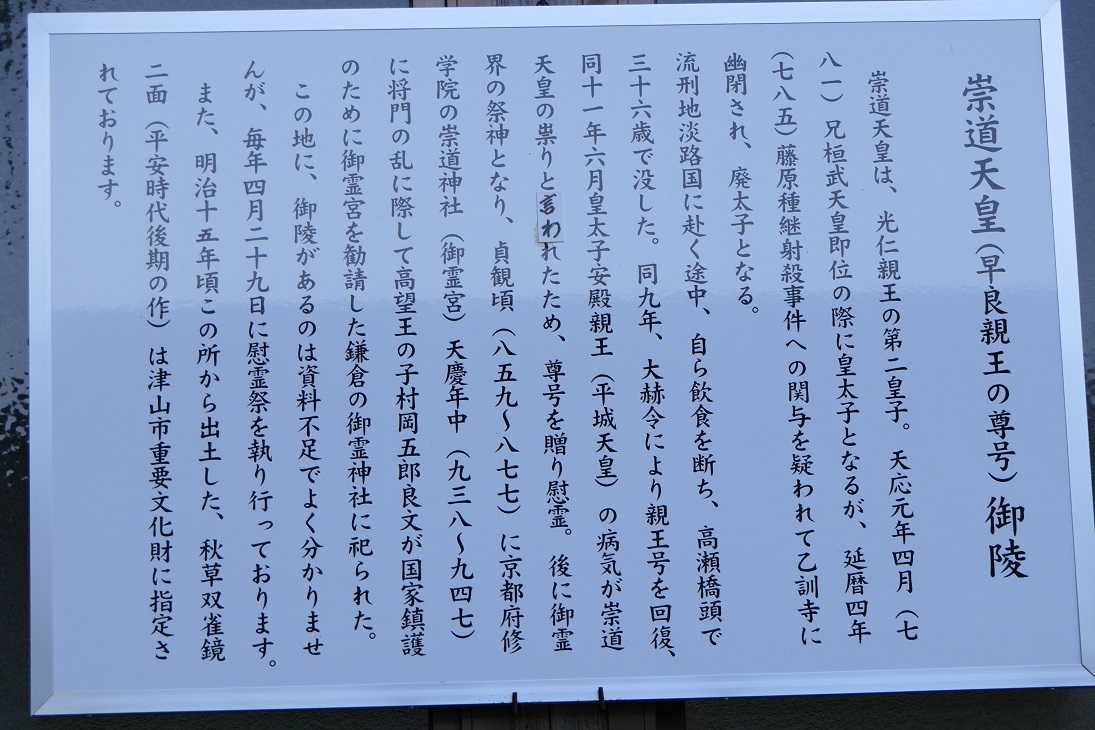 崇道天皇（早良親王の尊号）御陵
崇道天皇は、光仁親王の第二皇子。天応元年四月（七
八一）兄桓武天皇即位の際に皇太子となるが、延暦四年
（七八五）藤原種継射殺事件への関与を疑われて乙訓寺に
幽閉され、廃太子となる。
流刑地淡路国に赴く途中、自ら飲食を断ち、高瀬橋頭で
三十六歳で没した。同九年、大赦令により親王号を回復、
同十一年六月皇太子安殿親王（平城天皇）の病気が崇道
天皇の祟りと言われたため、尊号を贈り慰霊。後に御霊
界の祭神となり、貞観頃（八五九～八七七）に京都府修
学院の崇道神社（御霊宮）天慶年中（九三八～九四七）
に将門の乱に際して高望王の子村岡五郎良文が国家鎮護
のために御霊宮を勧請した鎌倉の御霊神社に祀られた。
この地に、御陵があるのは資料不足でよく分かりませ
んが、毎年四月二十九日に慰霊祭を執り行っております。
また、明治十五年頃この所から出土した、秋草双雀鏡
二面（平安時代後期の作）は津山市重要文化財に指定さ
れております。